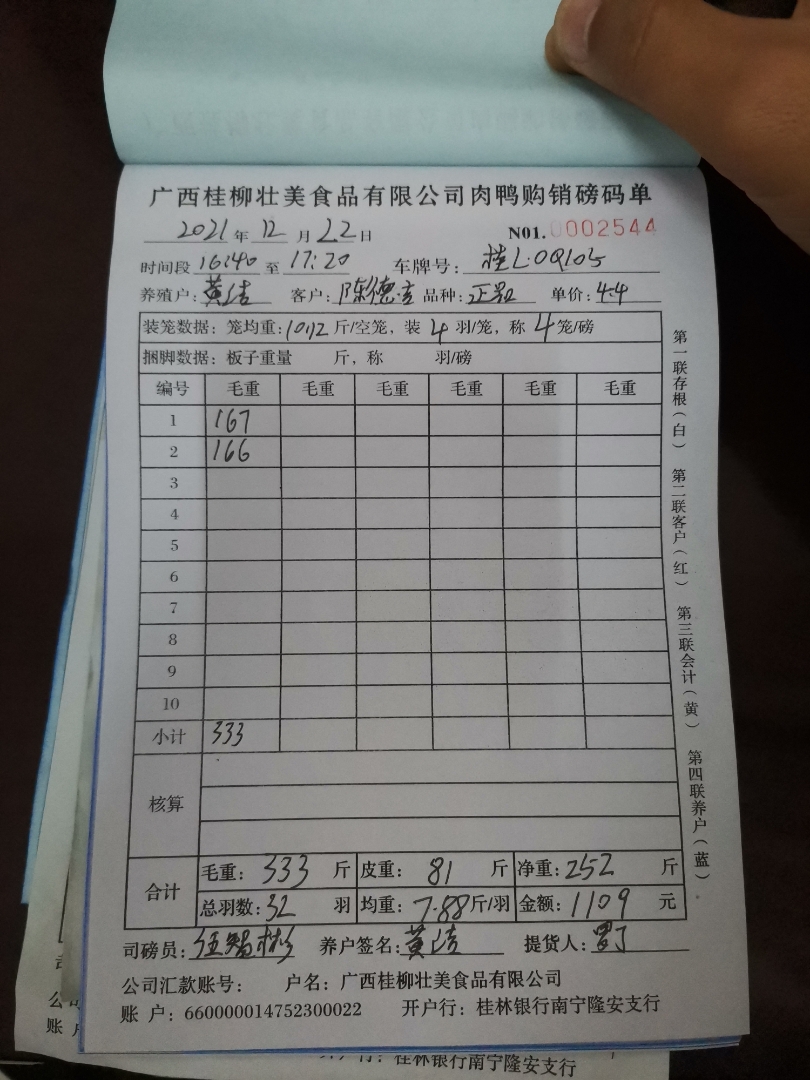 广西桂柳壮美食品有限公司肉鸭购销磅码单
2021年 12 月 22 日 N01. 0002544
时间段 16:40 至 17:20 车牌号: 桂L·0Q105
养殖户: 黄洁 客户: 陈德 品种: 正 单价: 4.4
装笼数据: 笼均重: 10.12 斤/空笼, 装 4 羽/笼, 称 4 笼/磅
捆脚数据: 板子重量 斤, 称 羽/磅
编号 毛重 毛重 毛重 毛重 毛重 毛重
1 167
2 166
3
4
5
6
7
8
9
10
小计 333
核算
合计 毛重: 333 斤 皮重: 81 斤 净重: 252 斤
总羽数: 32 羽 均重: 7.88 斤/羽 金额: 1109 元
司磅员: 养户签名: 黄洁 提货人:
公司汇款账号: 户名: 广西桂柳壮美食品有限公司
账 户: 660000014752300022 开户行: 桂林银行南宁隆安支行
第一联存根(白) 第二联客户(红) 第三联会计(黄) 第四联养户(蓝)
桂林银行南宁隆安支行